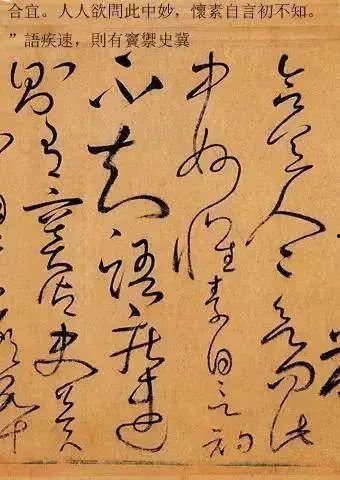 合宜。人人欲問此中妙，懷素自言初不知。
”語疾速，則有竇禦史冀
合宜人〻欲問此
中妙懷素自言初
不知語疾速
則有竇御史冀